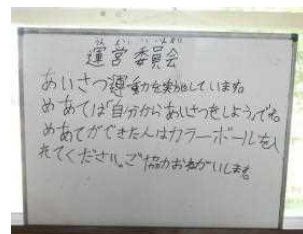 うんえいいいんかい
運営委員会
あいさつ運動を実施しています。
めあては「自分からあいさつをしよう」です。
めあてができた人はカラーボールを入
れてください。ご協力おねがいします